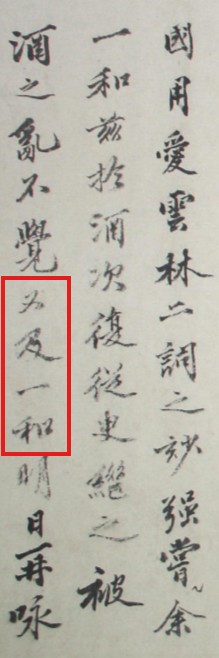 國用愛雲林二詞之妙強嘗余
一和茲於酒次復從臾繼之被
酒之亂不覺又及一和明日再咏